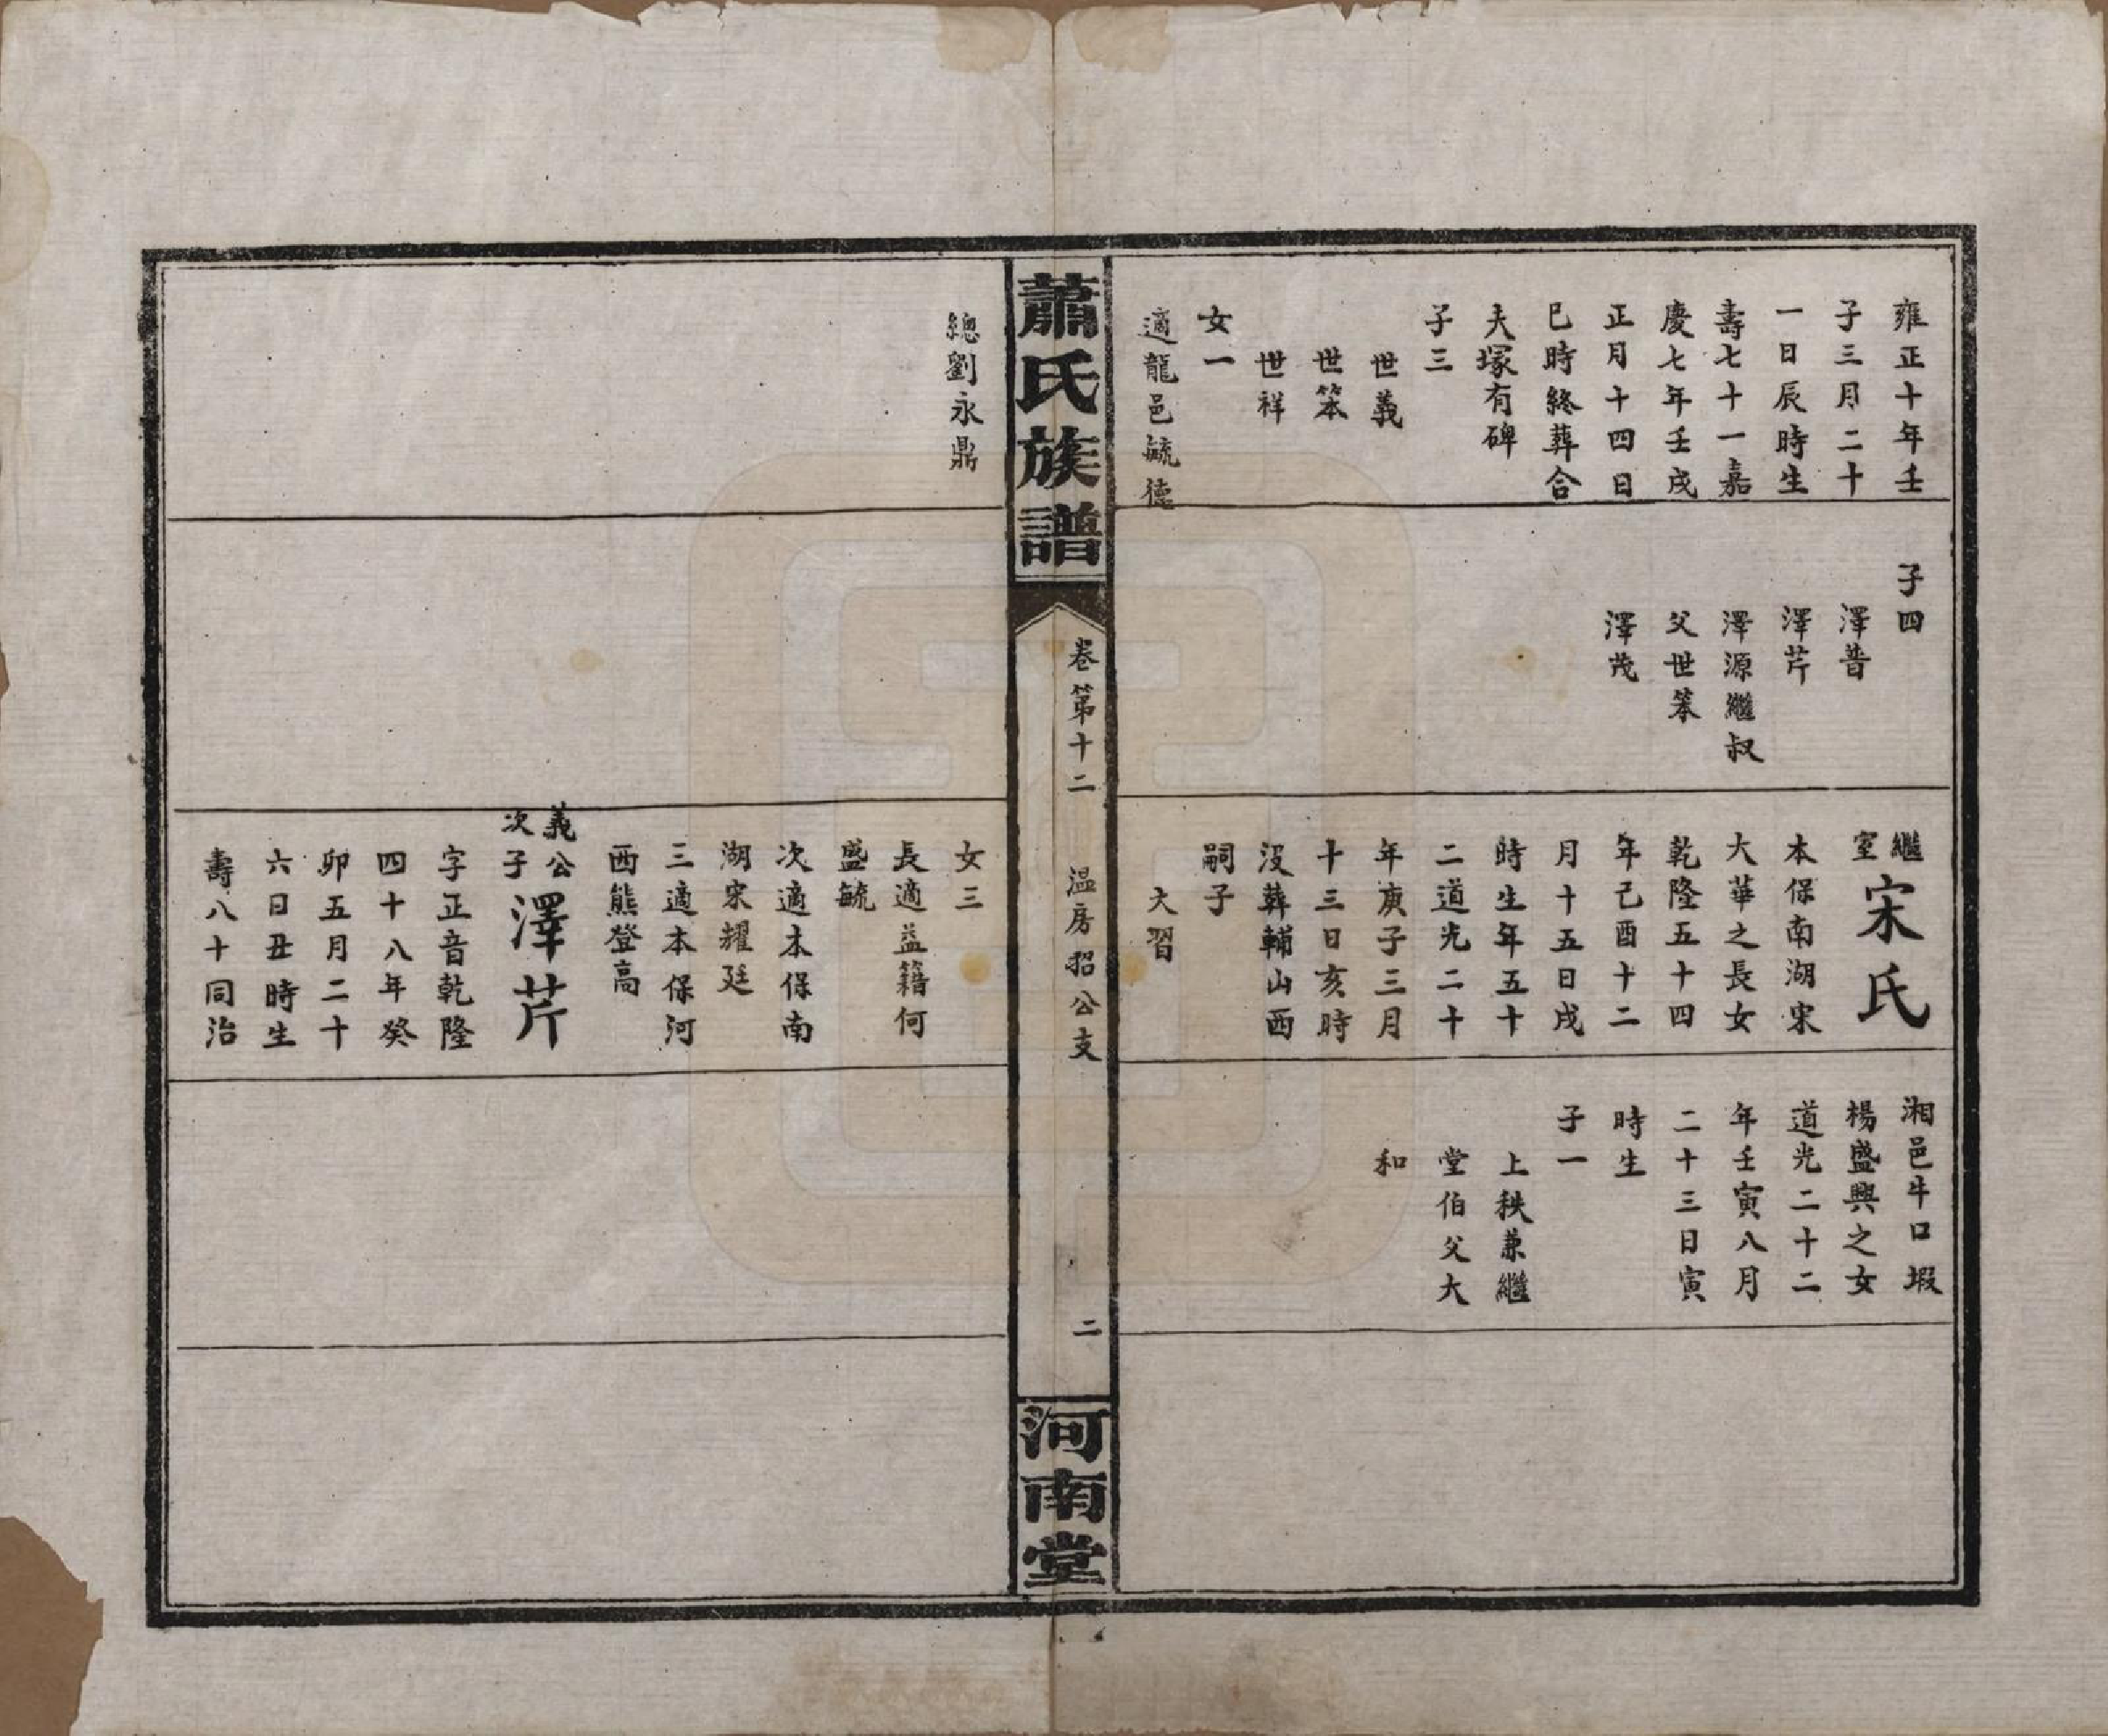 雍正十年壬
子三月二十
一日辰時生
壽七十一嘉
慶七年壬戌
正月十四日
巳時終葬合
夫塚有碑
子三
世義
世笨
世祥
女一
適龍邑毓德
子四
澤普
澤芹
澤源繼叔
父世笨
澤茂
繼室宋氏
本保南湖宋
大華之長女
乾隆五十四
年己酉十二
月十五日戌
時生年五十
二道光二十
年庚子三月
十三日亥時
沒葬輔山西
嗣子
大習
湘邑牛口塅
楊盛興之女
道光二十二
年壬寅八月
二十三日寅
時生
子一
上秩兼繼
堂伯父大
和
蕭氏族譜
卷第十二
温房招公支
二
河南堂
總劉永鼎
女三
長適益籍何
盛毓
次適本保南
湖宋耀廷
三適本保河
西熊登高
義公次子澤芹
字正音乾隆
四十八年癸
卯五月二十
六日丑時生
壽八十同治